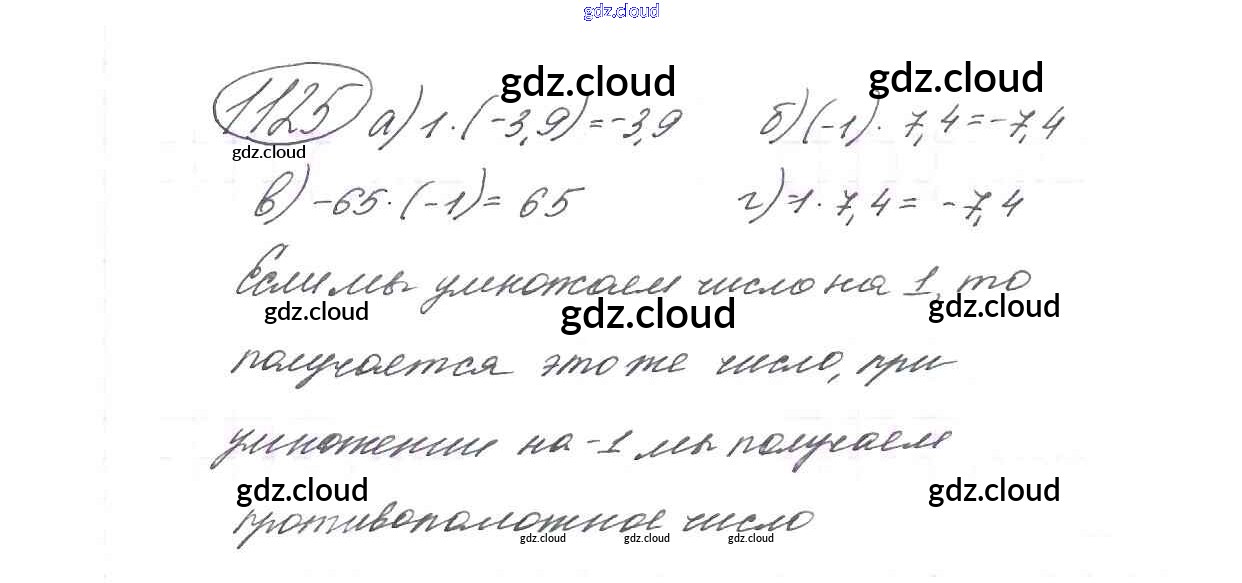 gdz.cloud
gdz.cloud gdz.cloud
1125 а) 1·(-3,9)=-3,9 б) (-1)·7,4=-7,4
gdz.cloud
в) -65·(-1)=65 г) -1·7,4=-7,4
Если мы умножаем число на 1, то
gdz.cloud gdz.cloud gdz.cloud
получается это же число, при
умножении на -1 мы получаем
gdz.cloud gdz.cloud
противоположное число
gdz.cloud gdz.cloud gdz.cloud